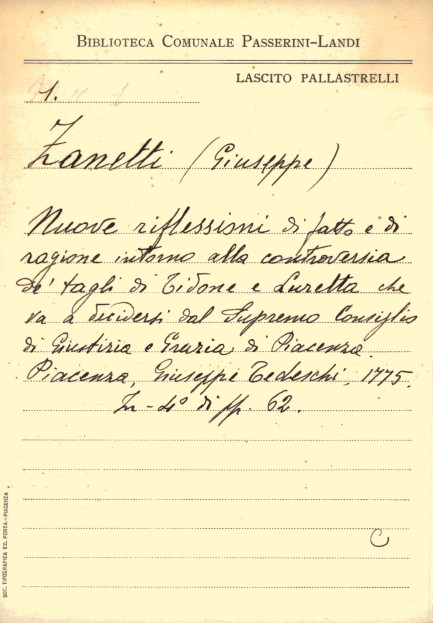 BIBLIOTECA COMUNALE PASSERINI-LANDI
LASCITO PALLASTRELLI
1.
Zanetti (Giuseppe)
Nuove riflessioni di fatto e di
ragione intorno alla controversia
de' tagli di Tidone e Luretta che
va a decidersi dal Supremo Consiglio
di Giustizia e Grazia di Piacenza.
Piacenza, Giuseppe Tedeschi, 1775.
In-4° di pp. 62.
C
SOC. TIPOGRAFICA ED. PORTA-PIACENZA